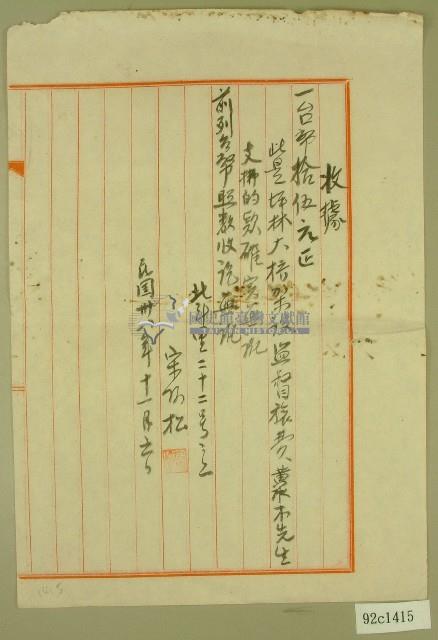 收據
一台幣拾伍元正
此是坪林大橋架設監督旅費 黃木先生
支拂的款確實無訛
前列台幣照数收訖無訛
北斗里二十二号之一
宋 松
民國卅 年十一月 日
國史館臺灣文獻館
92c1415